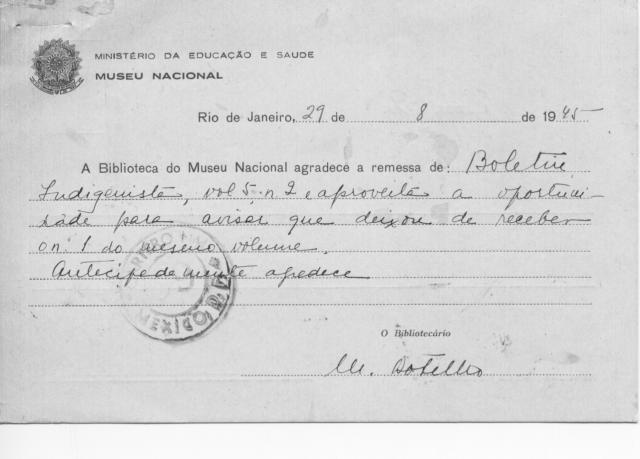 MINISTÉRIO DA EDUCAÇÃO E SAUDE
MUSEU NACIONAL
Rio de Janeiro, 29 de 8 de 1945
A Biblioteca do Museu Nacional agradece a remessa de: Boletin
Indigenista, vol 5 n. 2 e aproveita a oportuni-
dade para avisar que deixou de receber
o n. 1 do mesmo volume.
Antecipadamente agredece
MEXICO D.F.
O Bibliotecário
M. Botelho